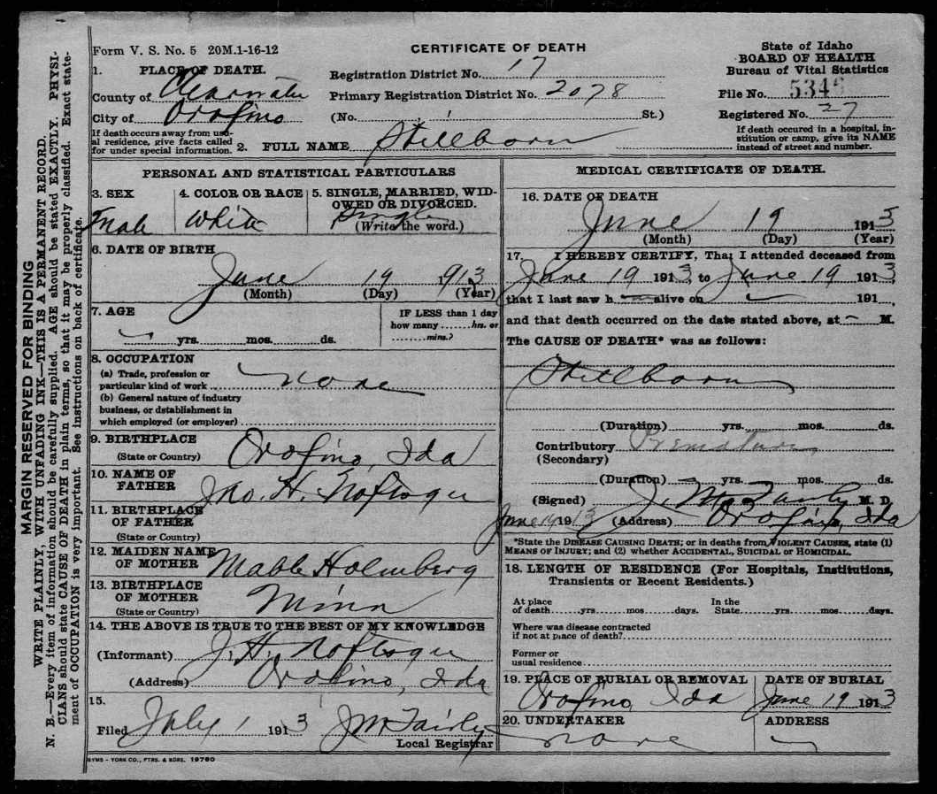 Form V. S. No. 5 20M.1-16-12
CERTIFICATE OF DEATH
State of Idaho
BOARD OF HEALTH
Bureau of Vital Statistics
1. PLACE OF DEATH.
County of Clearwater
City of Orofino
If death occurs away from usual residence, give facts called for under special information.
Registration District No. 17
Primary Registration District No. 2078
(No. St.)
File No. 5346
Registered No. 27
If death occured in a hospital, institution or camp, give its NAME instead of street and number.
2. FULL NAME Stillborn
PERSONAL AND STATISTICAL PARTICULARS
3. SEX
4. COLOR OR RACE White
5. SINGLE, MARRIED, WIDOWED OR DIVORCED. Single
(Write the word.)
6. DATE OF BIRTH
June 19 913
(Month) (Day) (Year)
7. AGE
yrs. mos. ds.
IF LESS than 1 day
how many hrs. or
mins.?
8. OCCUPATION
(a) Trade, profession or
particular kind of work none
(b) General nature of industry
business, or establishment in
which employed (or employer)
9. BIRTHPLACE
(State or Country) Orofino, Ida
10. NAME OF
FATHER Jno. H.
11. BIRTHPLACE
OF FATHER
(State or Country)
12. MAIDEN NAME
OF MOTHER Mable Holmberg
13. BIRTHPLACE
OF MOTHER
(State or Country) Minn
14. THE ABOVE IS TRUE TO THE BEST OF MY KNOWLEDGE
(Informant) J. H.
(Address) Orofino, Ida
15.
Filed July 1 1913
Local Registrar
MEDICAL CERTIFICATE OF DEATH.
16. DATE OF DEATH
June 19 1913
(Month) (Day) (Year)
17. I HEREBY CERTIFY, That I attended deceased from
June 19 1913, to June 19 1913,
that I last saw h — alive on 191 ,
and that death occurred on the date stated above, at — M.
The CAUSE OF DEATH* was as follows:
Stillborn
(Duration) yrs. mos. ds.
Contributory
(Secondary)
(Duration) yrs. mos. ds.
(Signed) M. D.
June 19 1913 (Address) Orofino, Ida
*State the DISEASE CAUSING DEATH; or in deaths from VIOLENT CAUSES, state (1)
MEANS OF INJURY; and (2) whether ACCIDENTAL, SUICIDAL or HOMICIDAL.
18. LENGTH OF RESIDENCE (For Hospitals, Institutions,
Transients or Recent Residents.)
At place
of death yrs. mos. days.
In the
State yrs. mos. days.
Where was disease contracted
if not at place of death?
Former or
usual residence
19. PLACE OF BURIAL OR REMOVAL
Orofino, Ida
DATE OF BURIAL
June 19 1913
20. UNDERTAKER
none
ADDRESS
MARGIN RESERVED FOR BINDING
WRITE PLAINLY, WITH UNFADING INK—THIS IS A PERMANENT RECORD.
N. B.—Every item of information should be carefully supplied. AGE should be stated EXACTLY. PHYSI-
CIANS should state CAUSE OF DEATH in plain terms, so that it may be properly classified. Exact state-
ment of OCCUPATION is very important. See instructions on back of certificate.
SYMS - YORK CO., PTRS. & BDRS. 19780